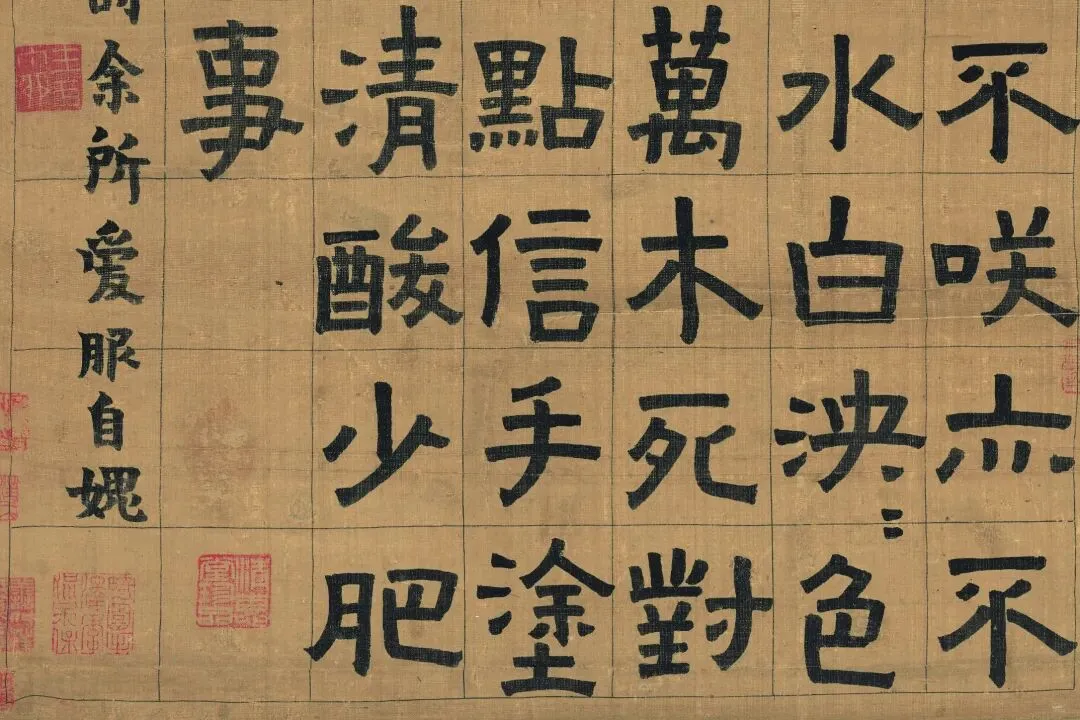 不咲亦不
水白泱〻色
萬木死對
點信手塗
清酸少肥
事
余所爱服自媿